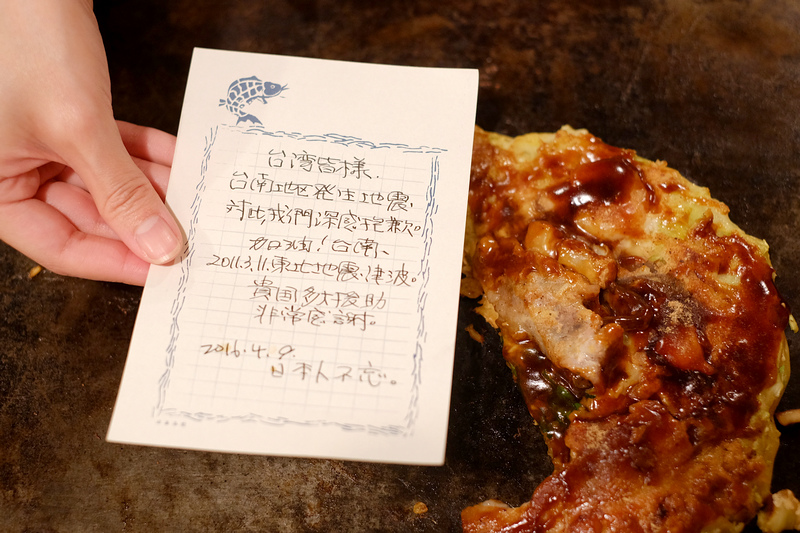 台湾皆様.
台南地区発生地震、
対此我們深感抱歉。
加油!台南、
2011.3.11.東北地震.津波。
貴国多大援助
非常感謝。
2016.4.9.
日本人不忘。